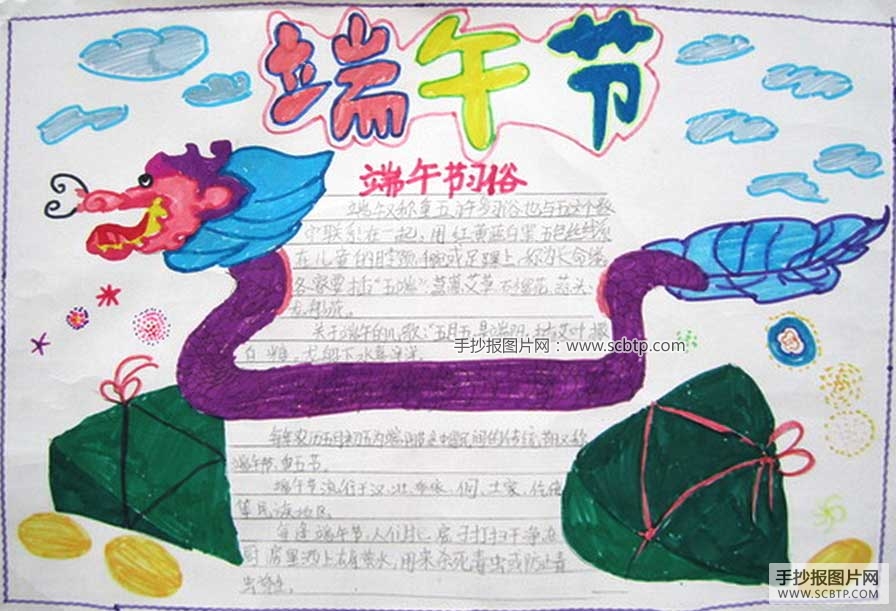 端午节
端午节习俗
端午又称重五,许多习俗也与五这个数
字联系在一起。用红黄蓝白黑五色丝线系
在儿童的脖颈、腕或足踝上,称为长命缕。
各家要插“五端”:菖蒲、艾草、石榴花、蒜头、
龙船花。
关于端午的儿歌:“五月五,是端阳,插艾叶,
白,龙船下水喜洋洋。
手抄报图片网:www.scbtp.com
每年农历五月初五为端阳节,是中国民间的传统节日又称
端午节、重五节。
端午节流行于汉、壮、侗、土家、仡佬
等民族地区。
每逢端午节,人们把房子打扫干净,在
厨房里洒上雄黄水,用来杀死毒虫或防止毒
虫
手抄报图片网
WWW.SCBTP.COM